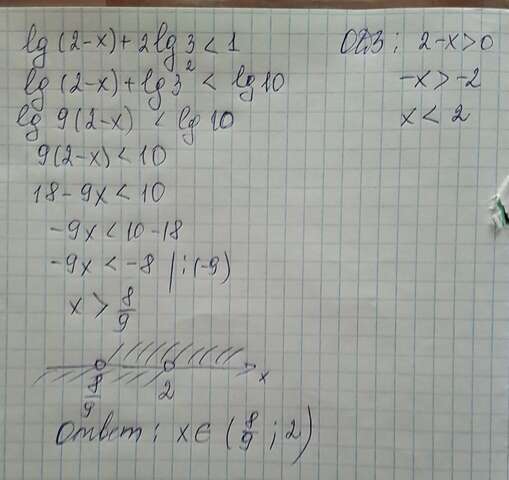 lg(2-x)+2lg3<1
ОДЗ: 2-x>0
lg(2-x)+lg3²<lg10
-x>-2
lg 9(2-x) <lg10
x<2
9(2-x)<10
18-9x<10
-9x<10-18
-9x<-8 |:(-9)
x>8/9
8/9 2 x
Ответ: x∈(8/9;2)